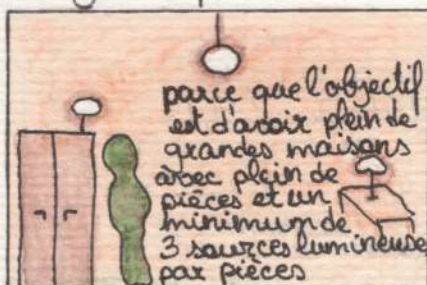 parce que l'objectif
est d'avoir plein de
grandes maisons
avec plein de
pièces et un
minimum de
3 sources lumineuses
par pièces